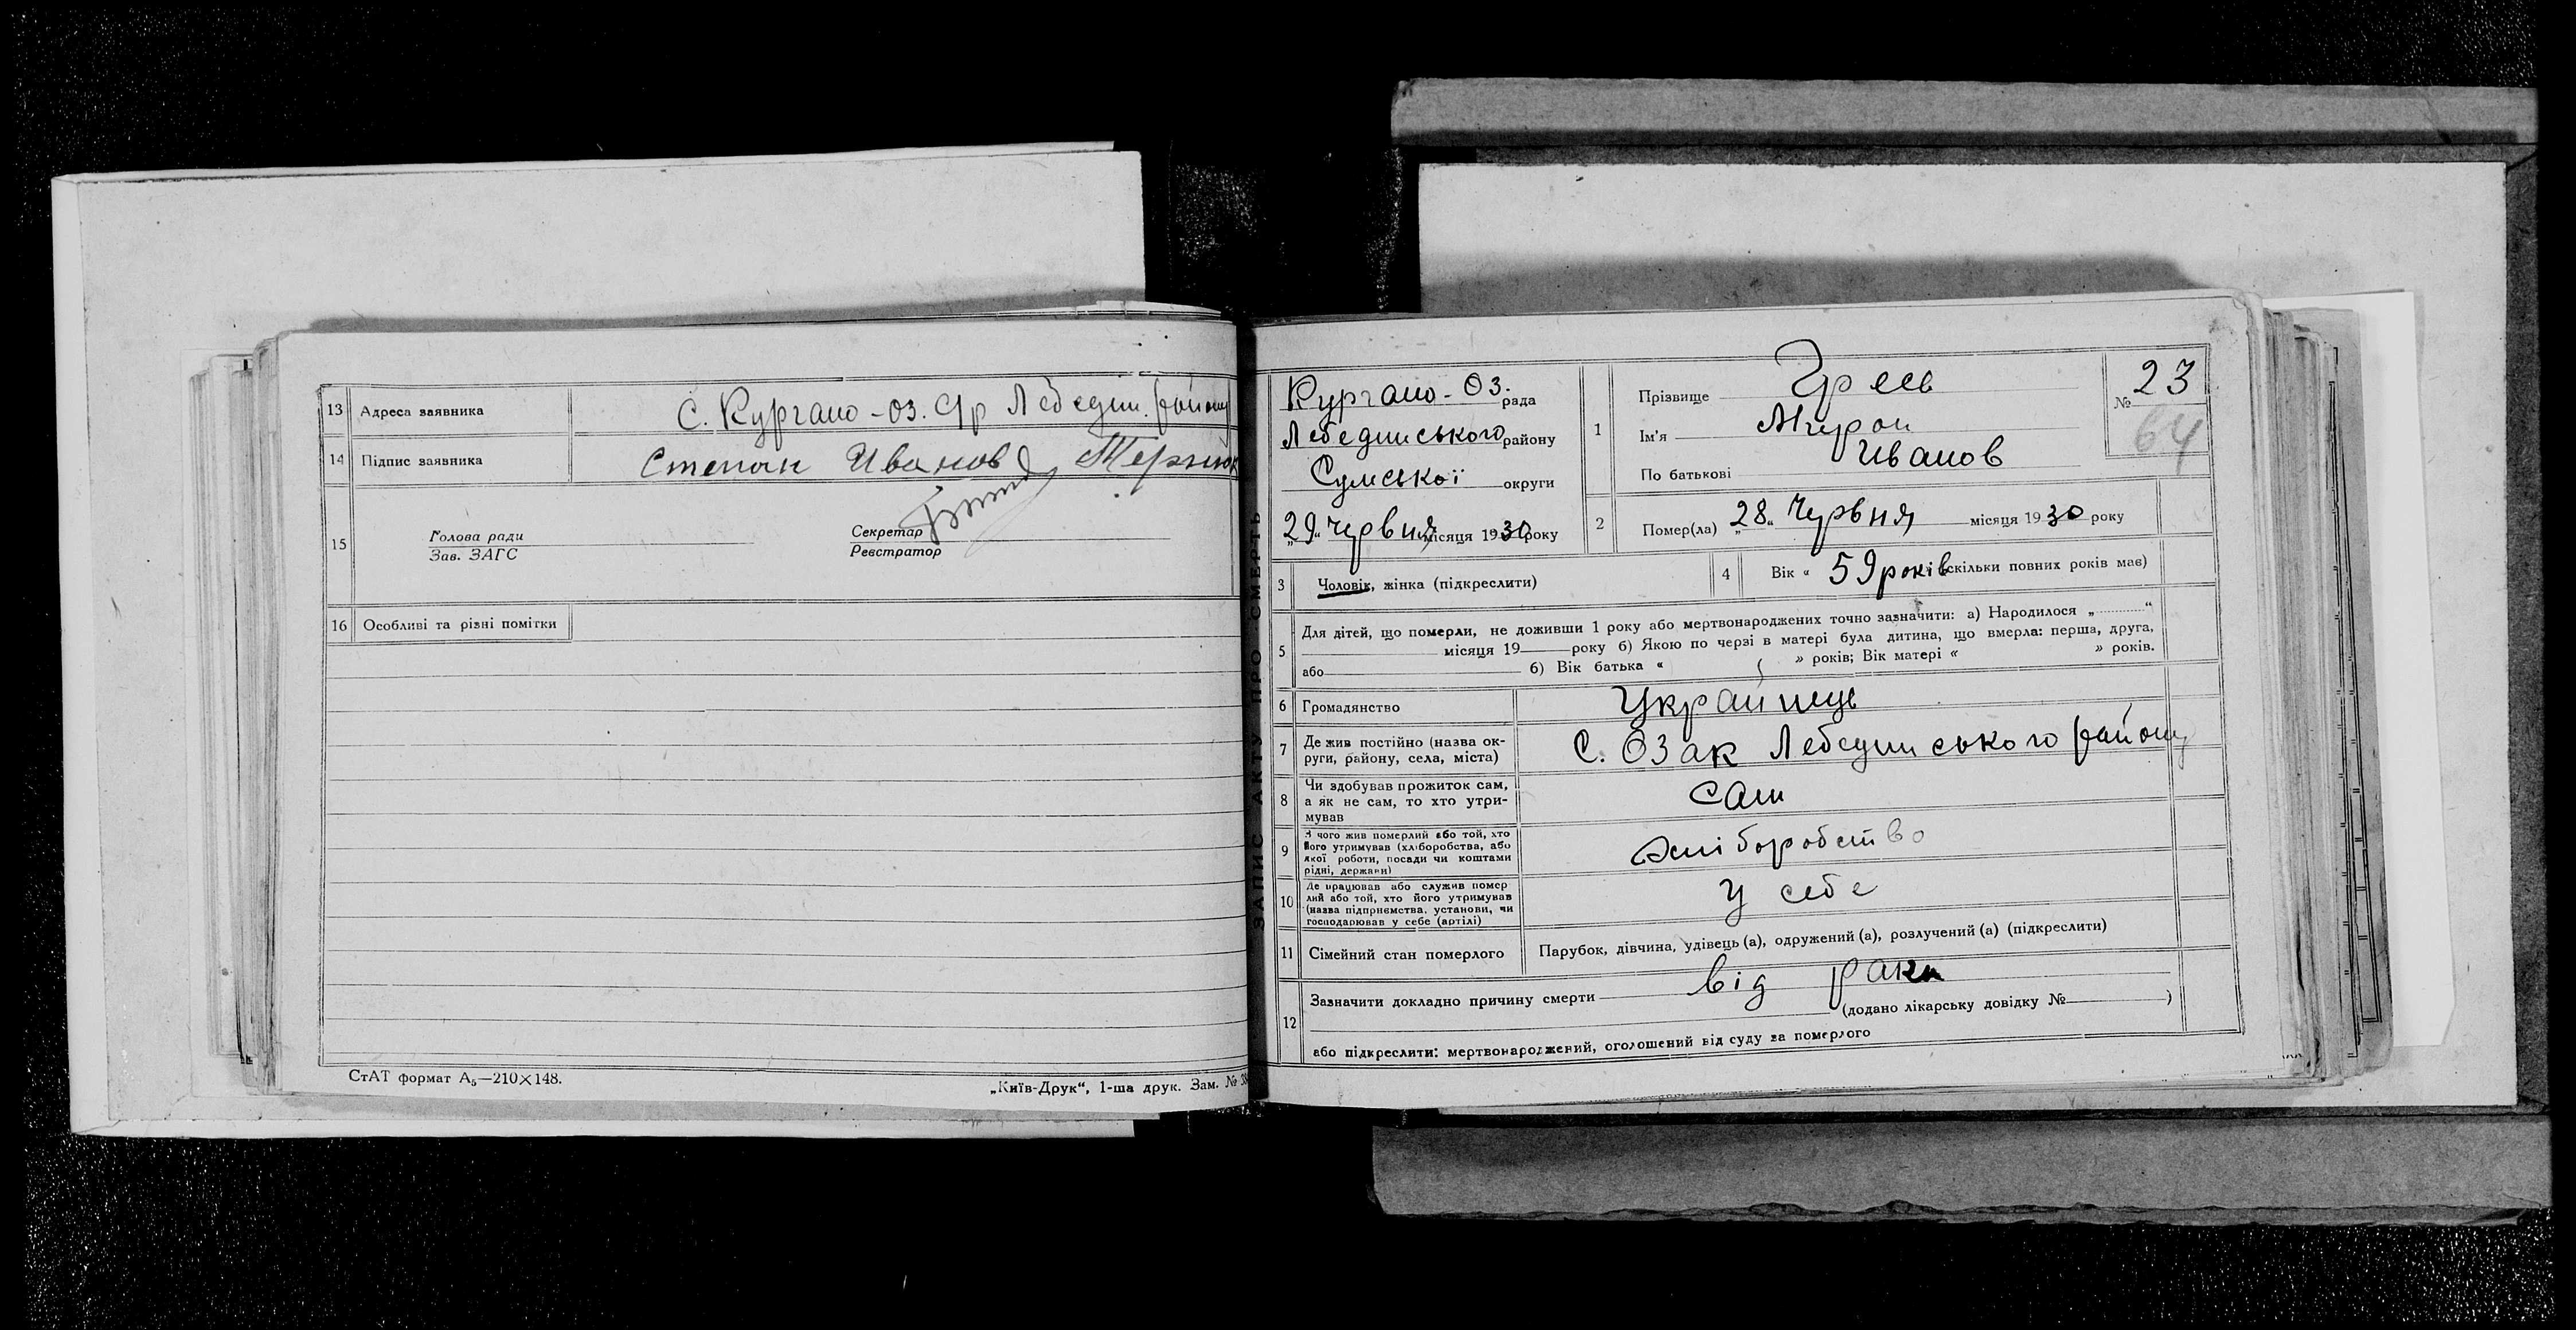 13 Адреса заявника С. Кургано-Оз. С/р Лебедин. району
14 Підпис заявника Степан Иванов
15 Голова ради Зав. ЗАГС Секретар Реєстратор
16 Особливі та різні помітки
СтАТ формат А5—210×148.
„Київ-Друк“, 1-ша друк. Зам. №
ЗАПИС АКТУ ПРО СМЕРТЬ
Кургано-Оз. рада
Лебединського району
Сумської округи
„29“ Червня місяця 1930 року
1 Прізвище
Ім'я Мирон
По батькові Иванов
№ 23
64
2 Помер(ла) „28“ Червня місяця 1930 року
3 Чоловік, жінка (підкреслити)
4 Вік « 59 років скільки повних років має)
5 Для дітей, що померли, не доживши 1 року або мертвонароджених точно зазначити: а) Народилося „ “
місяця 19 року б) Якою по черзі в матері була дитина, що вмерла: перша, друга,
або б) Вік батька « » років; Вік матері « » років.
6 Громадянство Українець
7 Де жив постійно (назва ок-
руги, району, села, міста) С. Озак Лебединського району
8 Чи здобував прожиток сам,
а як не сам, то хто утри-
мував сам
9 З чого жив померлий або той, хто
його утримував (хліборобства, або
якої роботи, посади чи коштами
рідні, держави) хліборобство
10 Де працював або служив помер
лий або той, хто його утримував
(назва підприємства, установи, чи
господарював у себе (артілі) У себе
11 Сімейний стан померлого Парубок, дівчина, удівець (а), одружений (а), розлучений (а) (підкреслити)
12 Зазначити докладно причину смерти від рака
(додано лікарську довідку № )
або підкреслити: мертвонароджений, оголошений від суду за померлого